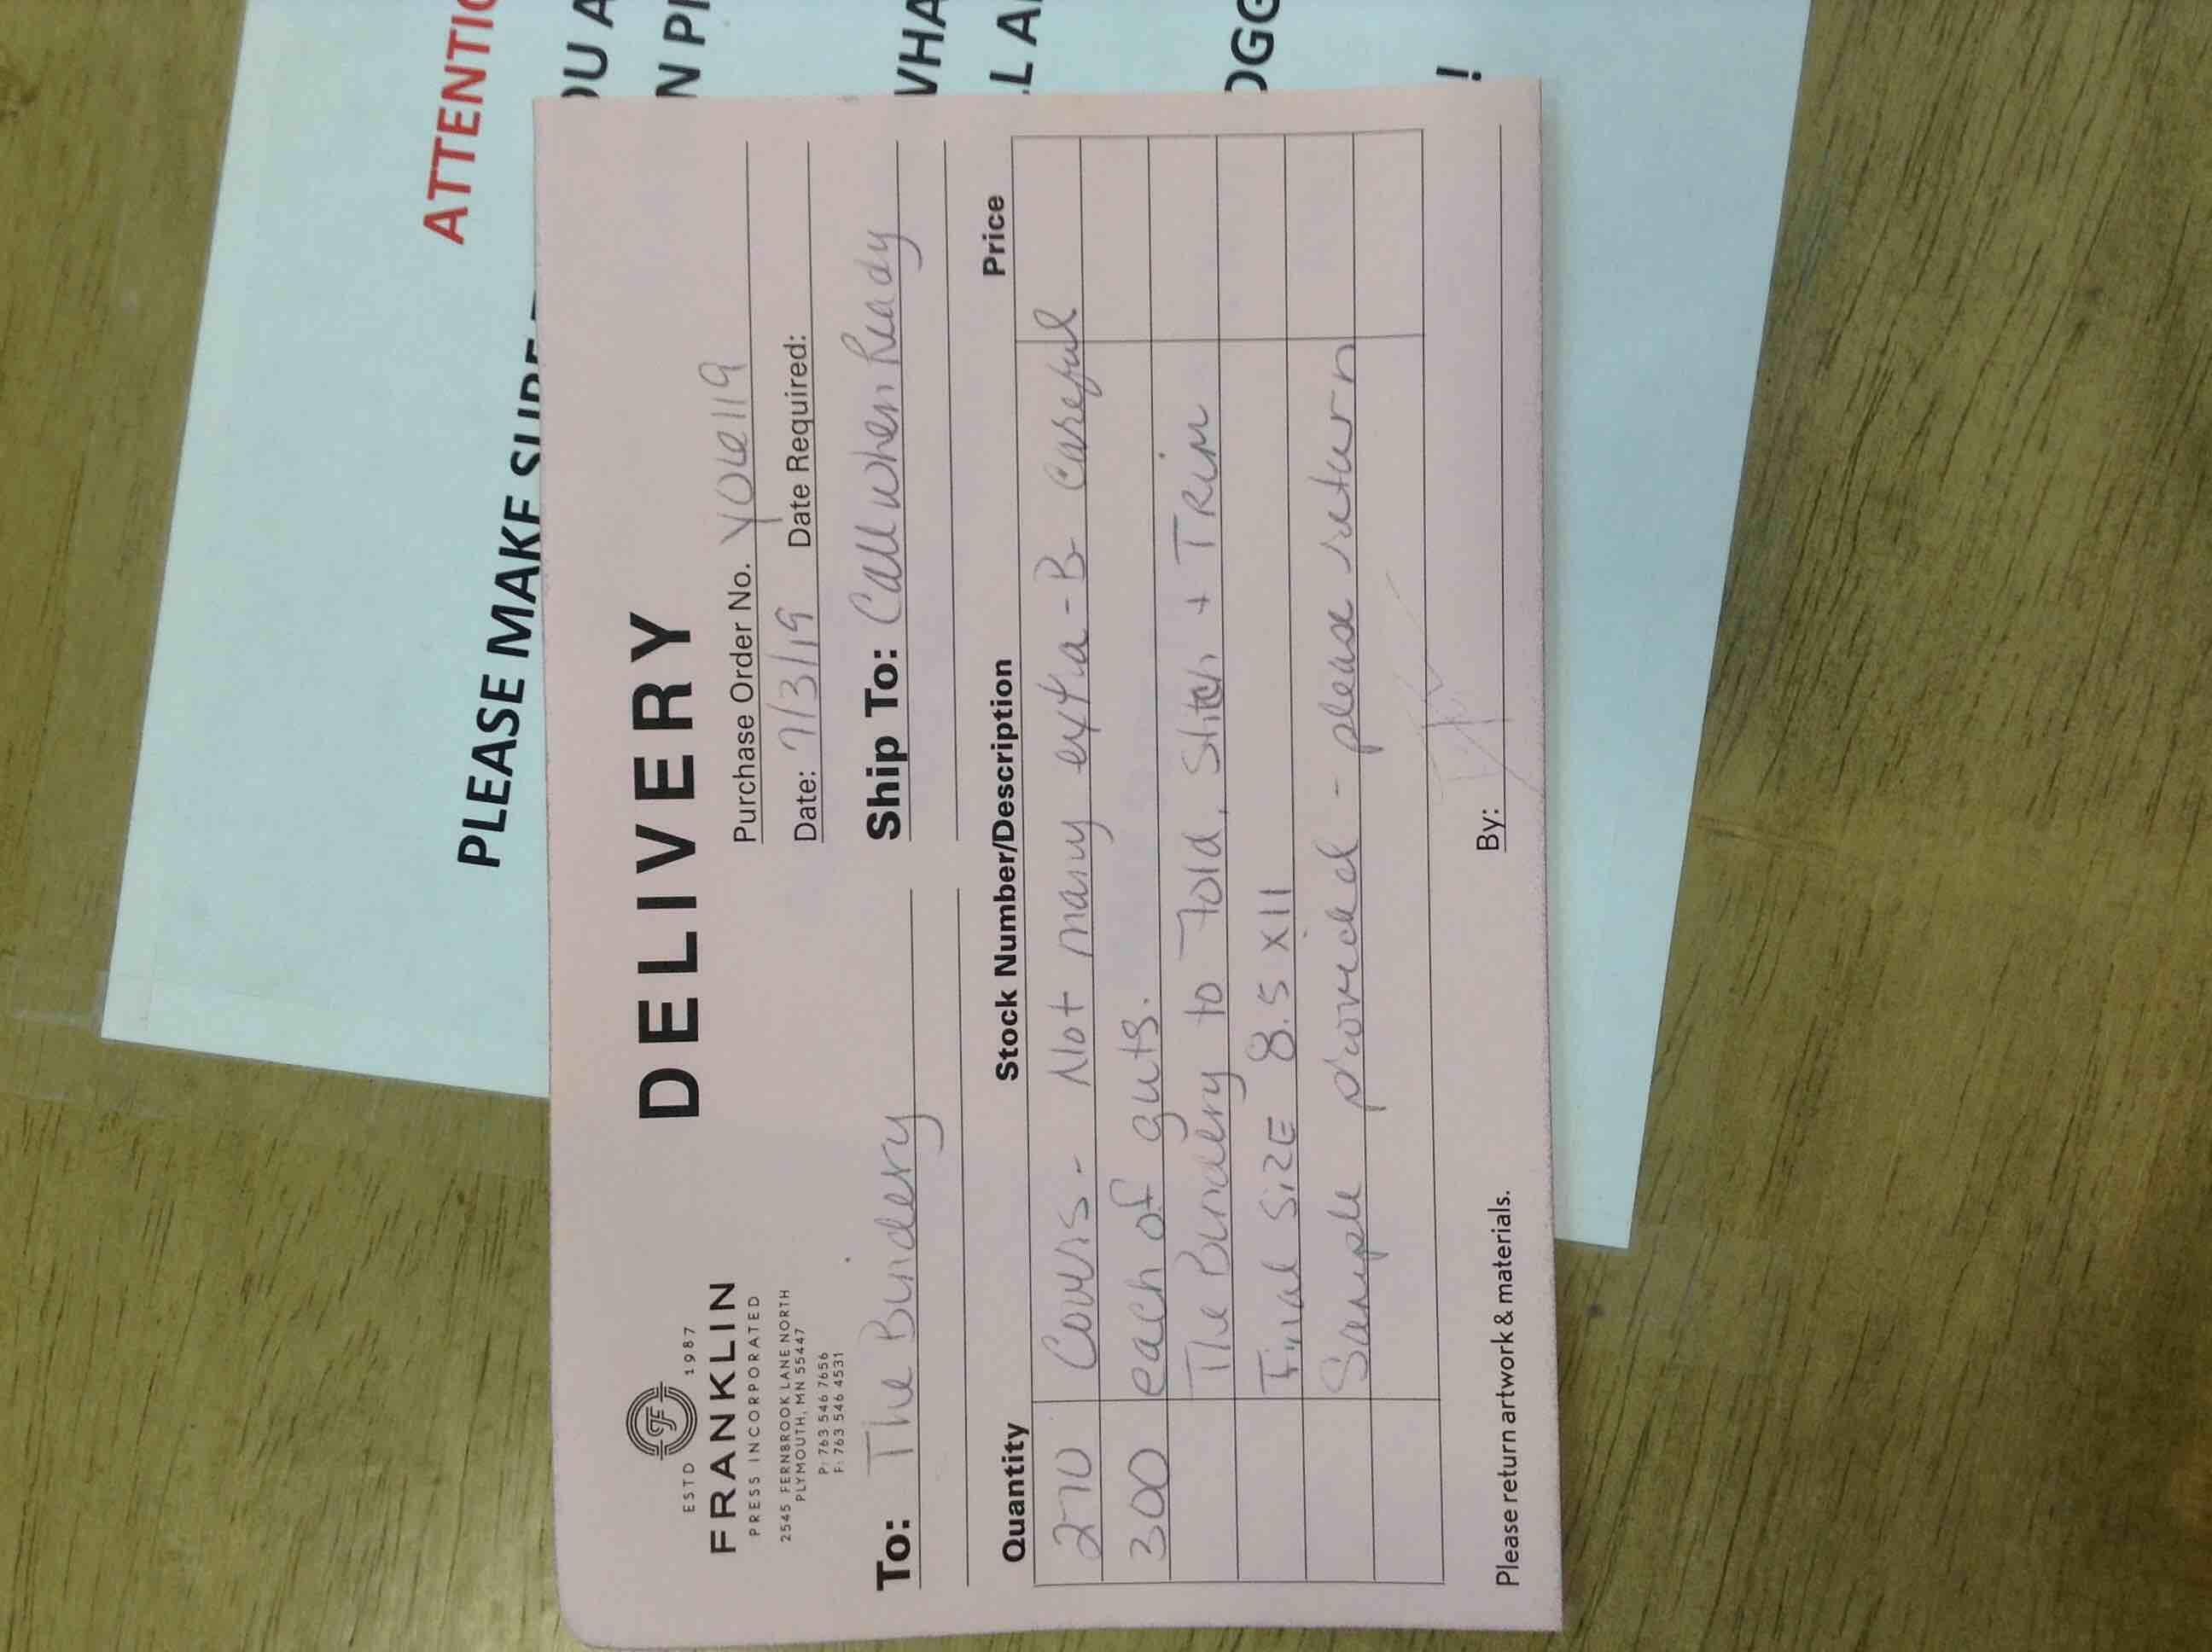 ATTENTIO
PLEASE MAKE SURE
OU A
N PI
WHA
LL A
OGG
!
ESTD 1987
FRANKLIN
PRESS INCORPORATED
2545 FERNBROOK LANE NORTH
PLYMOUTH, MN 55447
P: 763 546 7656
F: 763 546 4531
DELIVERY
Purchase Order No.
Date: 7/3/19 Date Required:
To: The Bindery
Ship To: Call when Ready
Quantity Stock Number/Description Price
270 Covers - Not many extra - B careful
300 each of guts.
The Bindery to Fold, Stitch + TRim
Final SiZE 8.5 x 11
Sample provided - please return
Please return artwork & materials.
By: